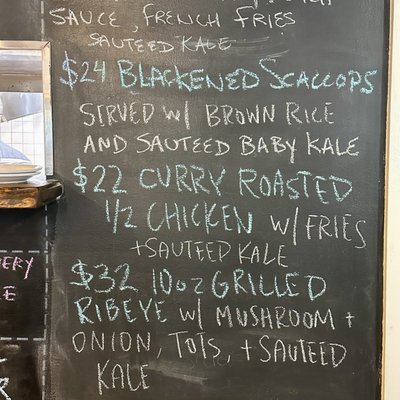 SAUCE, FRENCH FRIES
SAUTEED KALE
$24 BLACKENED SCALLOPS
SERVED W/ BROWN RICE
AND SAUTEED BABY KALE
$22 CURRY ROASTED
1/2 CHICKEN W/ FRIES
+ SAUTEED KALE
$32 10oz GRILLED
RIBEYE W/ MUSHROOM +
ONION, TOTS, + SAUTEED
KALE